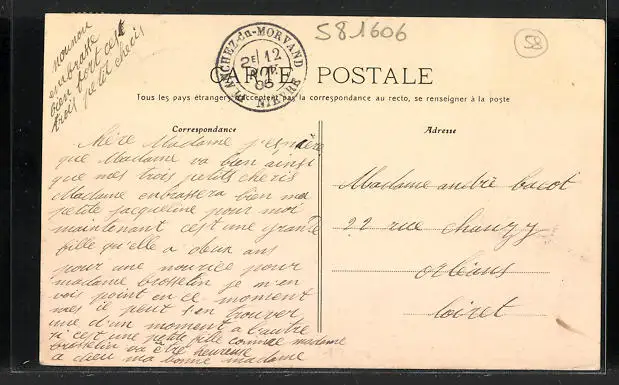 nounou
embrasse
bien fort ces
trois petit cheris
PLANCHEZ-du-MORVAND
2E / 12
NOV.
06
NIEVRE
581606
58
CARTE POSTALE
Tous les pays étrangers n'acceptent pas la correspondance au recto, se renseigner à la poste
Correspondance
Chère Madame j'espère
que Madame va bien ainsi
que mes trois petits cheris
Madame enbrassera bien ma
petite jacqueline pour moi
maintenant c'est une grande
fille qu'elle a deux ans
pour une nourice pour
madame brosselin je n'en
vois point en ce moment
mes il peut s'en trouver
une d'un moment a l'autre
si c'est une petite fille comme madame
brosselin va être heureuse
a dieu ma bonne madame
Adresse
Madame andré bacot
22 rue chanzy
orléans
loiret